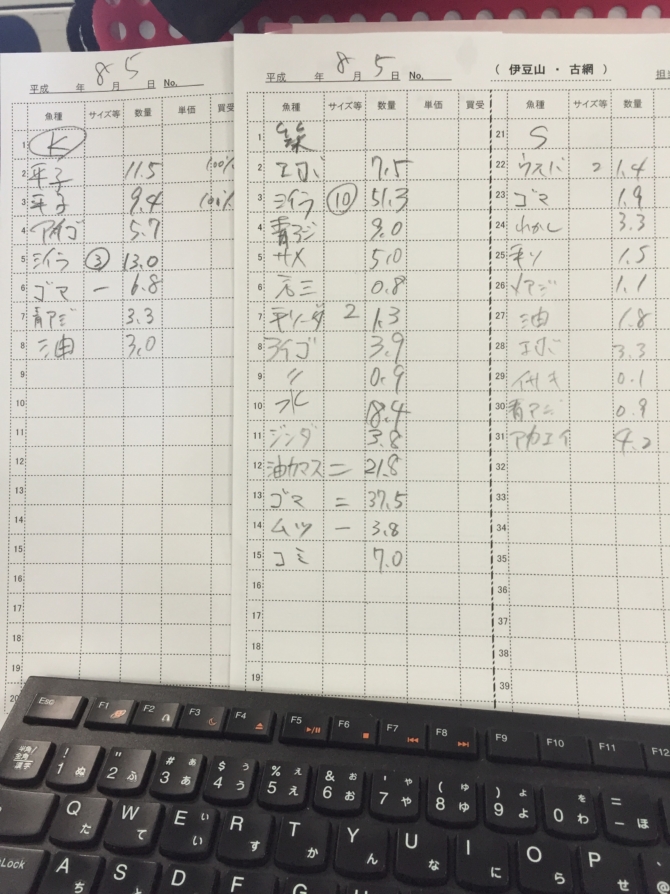 8 5
平成 年 月 日 No.
魚種 サイズ等 数量 単価 買受
1 K
2 平子 11.5 100%
3 平子 9.4 100%
4 アイゴ 5.7
5 シイラ ③ 13.0
6 ゴマ − 6.8
7 青アジ 3.3
8 油 3.0
9
10
11
12
13
14
15
16
17
18
19
20
8 5
平成 年 月 日 No.
( 伊豆山 ・ 古網 )
担
魚種 サイズ等 数量 単価 買受
1
2 エボ 7.5
3 シイラ ⑩ 51.3
4 青アジ 9.0
5 サメ 5.0
6 元三 0.8
7 平ソーダ 2 1.3
8 アイゴ 3.9
9 〃 0.9
10 水 8.4
11 ジンダ 3.8
12 油カマス = 21.8
13 ゴマ = 37.5
14 ムツ − 3.8
15 コミ 7.0
16
17
18
19
魚種 サイズ等 数量
21 S
22 ウスバ 2 1.4
23 ゴマ 1.9
24 わかし 3.3
25 平ソ 1.5
26 メアジ 1.1
27 油 1.8
28 エボ 3.3
29 イサキ 0.1
30 青アジ 0.9
31 アカエイ 4.2
32
33
34
35
36
37
38
39
Esc F1 F2 F3 F4 F5 F6 F7 F8 F9 F10 F11 F12
半角/全角 漢字 ! 1 ぬ " 2 ふ # 3 あ ぁ $ 4 う ぅ % 5 え ぇ & 6 お ぉ ' 7 や ゃ ( 8 ゆ ゅ ) 9 よ ょ 0 わ を = - ほ
Q た W て E い ぃ R す T か Y ん U な I に O ら P せ
Lock A ち S と D し F G H